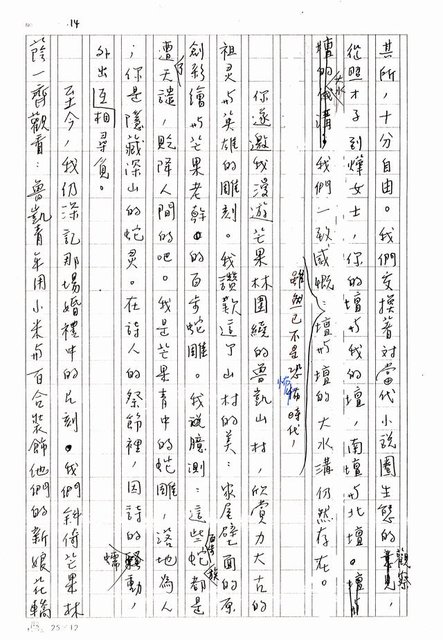 14
其所，十分自由。我們交換著對當代小說圈生態的觀察，
從照才子到煒女士，你的壇与我的壇，南壇与北壇。
我們一致感慨：雖然已不是恐怖時代，壇与壇的大水溝仍然存在。
你遂邀我漫遊芒果林圍繞的魯凱山村，欣賞力大古的
祖灵与英雄的雕刻。我讚歎這了山村的美：家屋壁面的原
創彩繪与芒果老幹的百步蛇雕。我說臆測：這些百步蛇族都是
遭了天譴，貶降人間的吧。我是芒果青中的蛇雕，落地為人
；你是隱藏深山的蛇灵。在詩人的祭節裡，因詩的蠕動，
外出互相尋覓。
至今，我仍深記那場婚禮中的片刻。我們斜倚芒果林
蔭一齊觀看：魯凱青年用小米与百合裝飾他們的新娘花轎
25×12